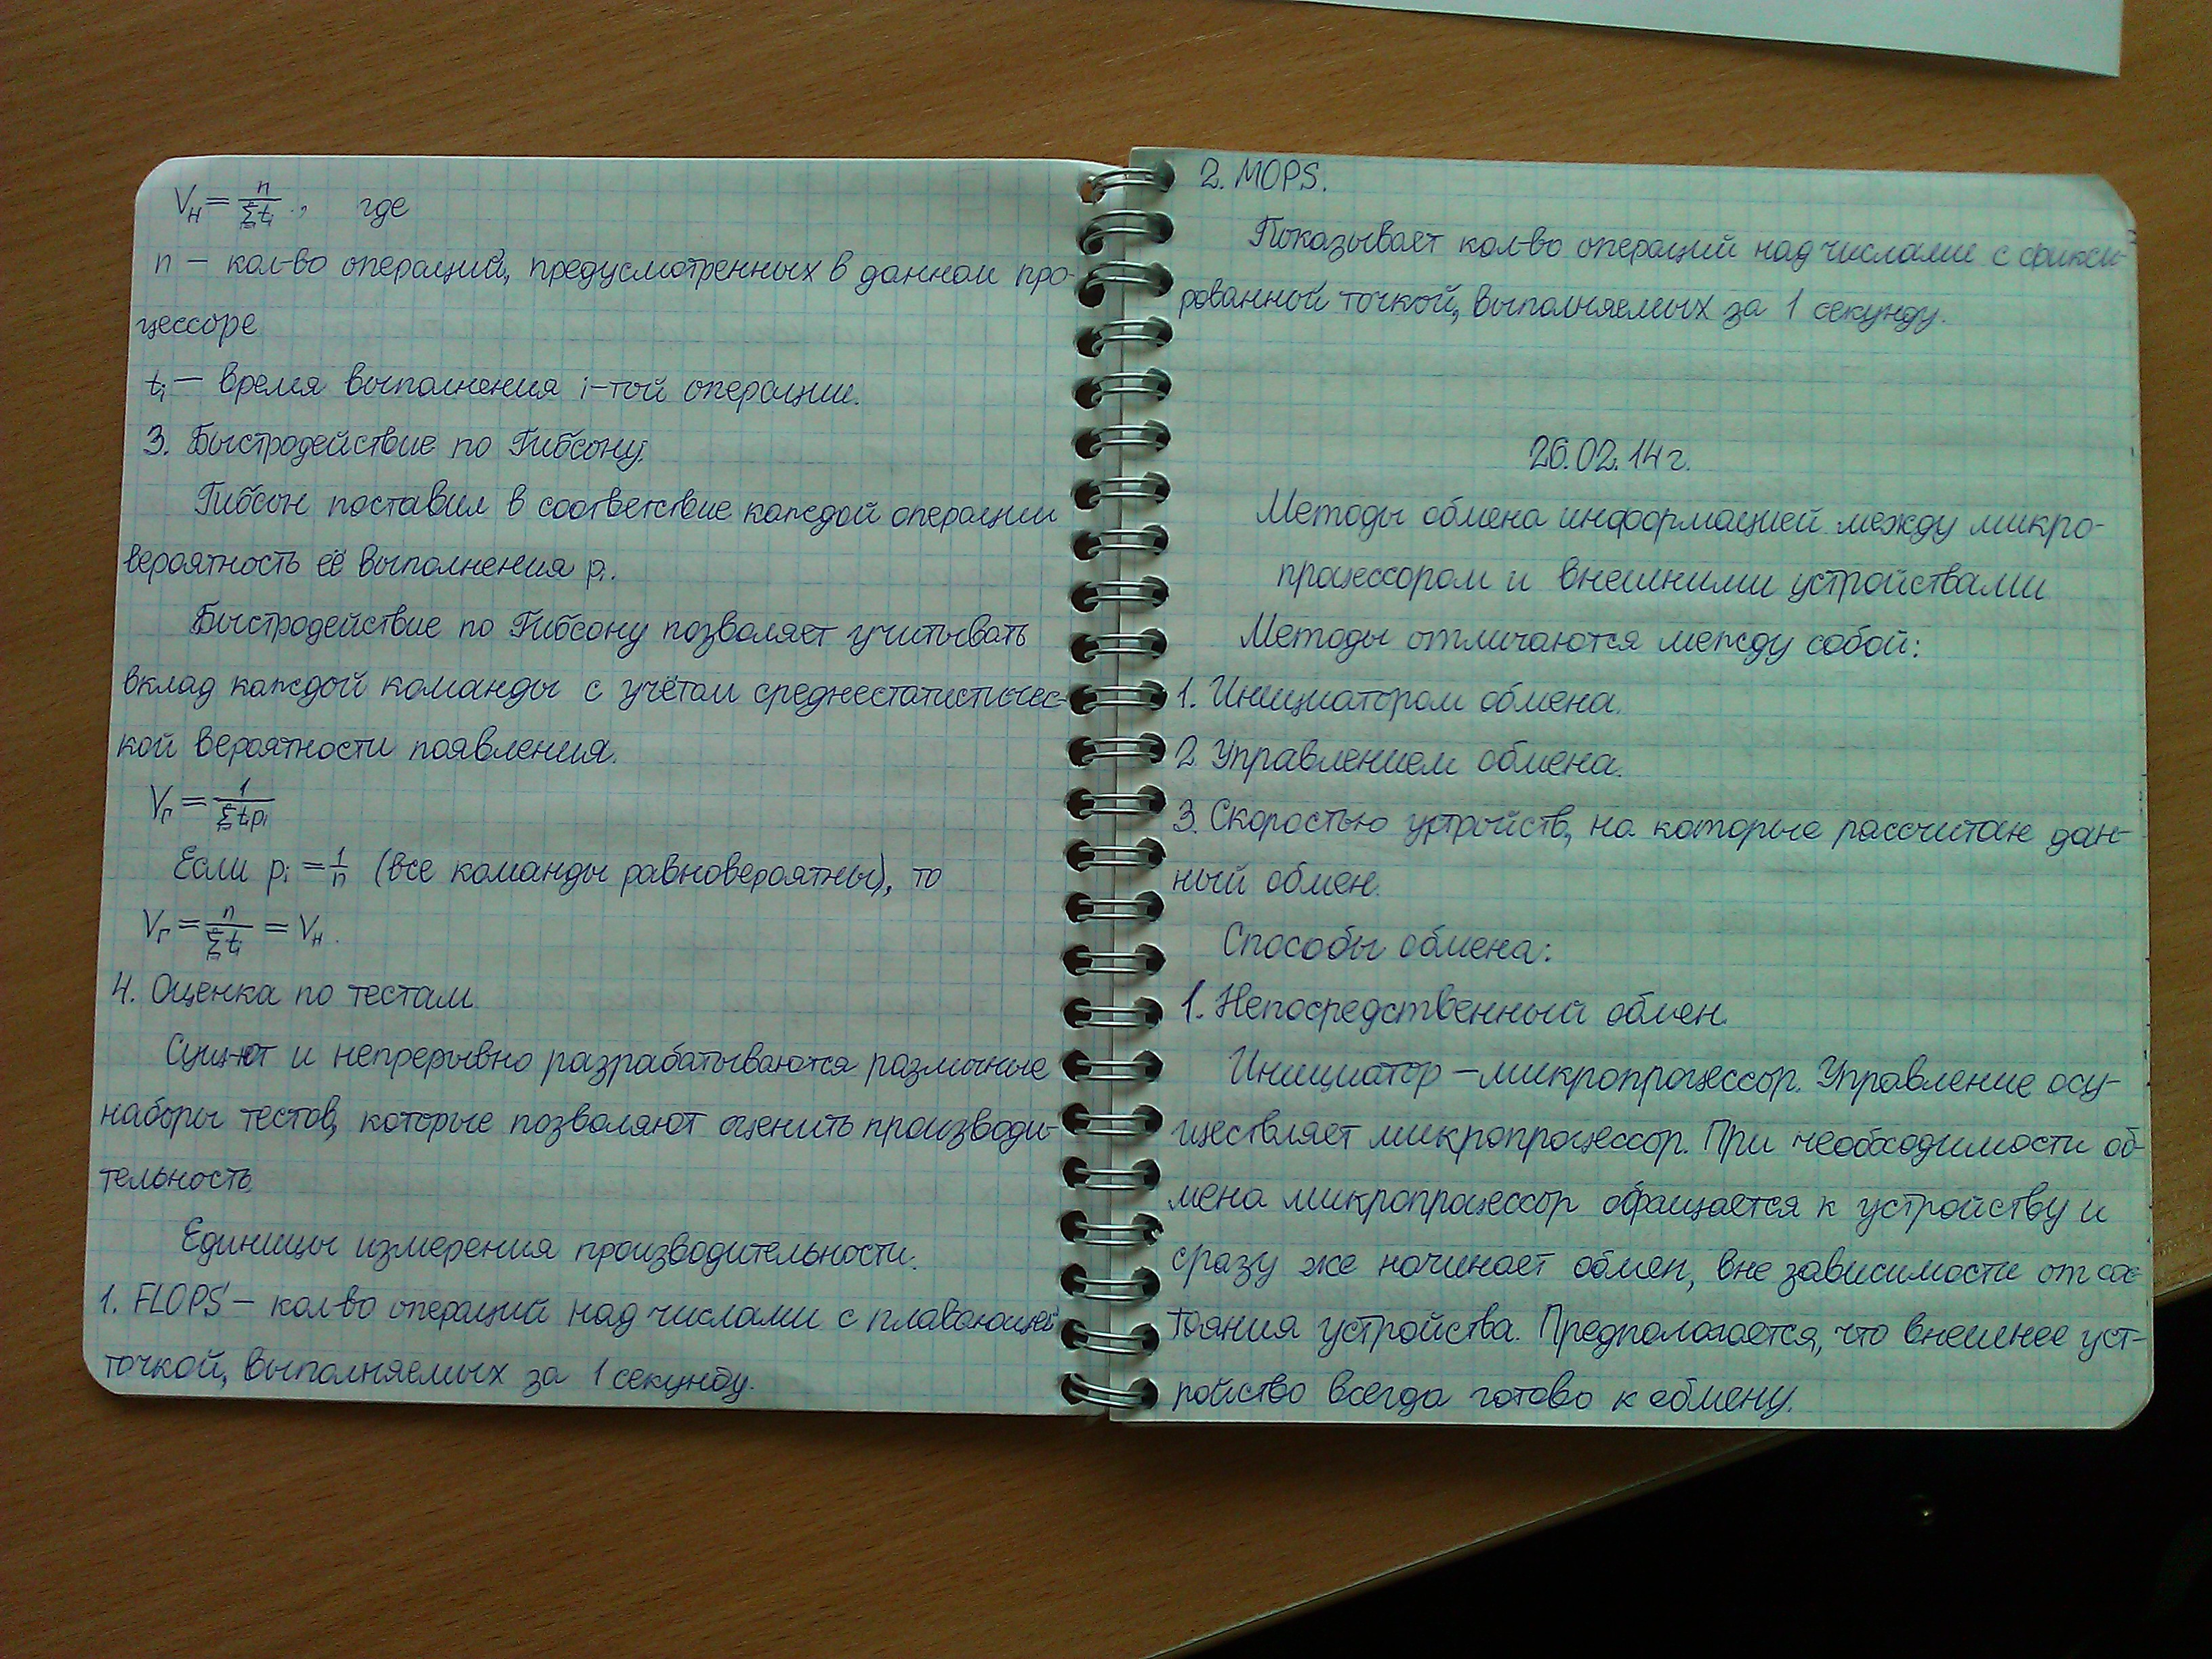 Vн = n / Σti , где
n – кол-во операций, предусмотренных в данном про-
цессоре
ti – время выполнения i-той операции.
3. Быстродействие по Гибсону.
Гибсон поставил в соответствие каждой операции
вероятность её выполнения pi.
Быстродействие по Гибсону позволяет учитывать
вклад каждой команды с учётом среднестатистичес-
кой вероятности появления.
Vг = 1 / Σtipi
Если pi = 1/n (все команды равновероятны), то
Vг = n / Σti = Vн.
4. Оценка по тестам
Сущ-ют и непрерывно разрабатываются различные
наборы тестов, которые позволяют оценить производи-
тельность.
Единицы измерения производительности.
1. FLOPS – кол-во операций над числами с плавающей
точкой, выполняемых за 1 секунду.
2. MOPS.
Показывает кол-во операций над числами с фикси-
рованной точкой, выполняемых за 1 секунду.
26.02.14г.
Методы обмена информацией между микро-
процессором и внешними устройствами
Методы отличаются между собой:
1. Инициатором обмена.
2. Управлением обмена.
3. Скоростью устройств, на которые рассчитан дан-
ный обмен.
Способы обмена:
1. Непосредственный обмен.
Инициатор – микропроцессор. Управление осу-
ществляет микропроцессор. При необходимости об-
мена микропроцессор обращается к устройству и
сразу же начинает обмен, вне зависимости от сос-
тояния устройства. Предполагается, что внешнее уст-
ройство всегда готово к обмену.